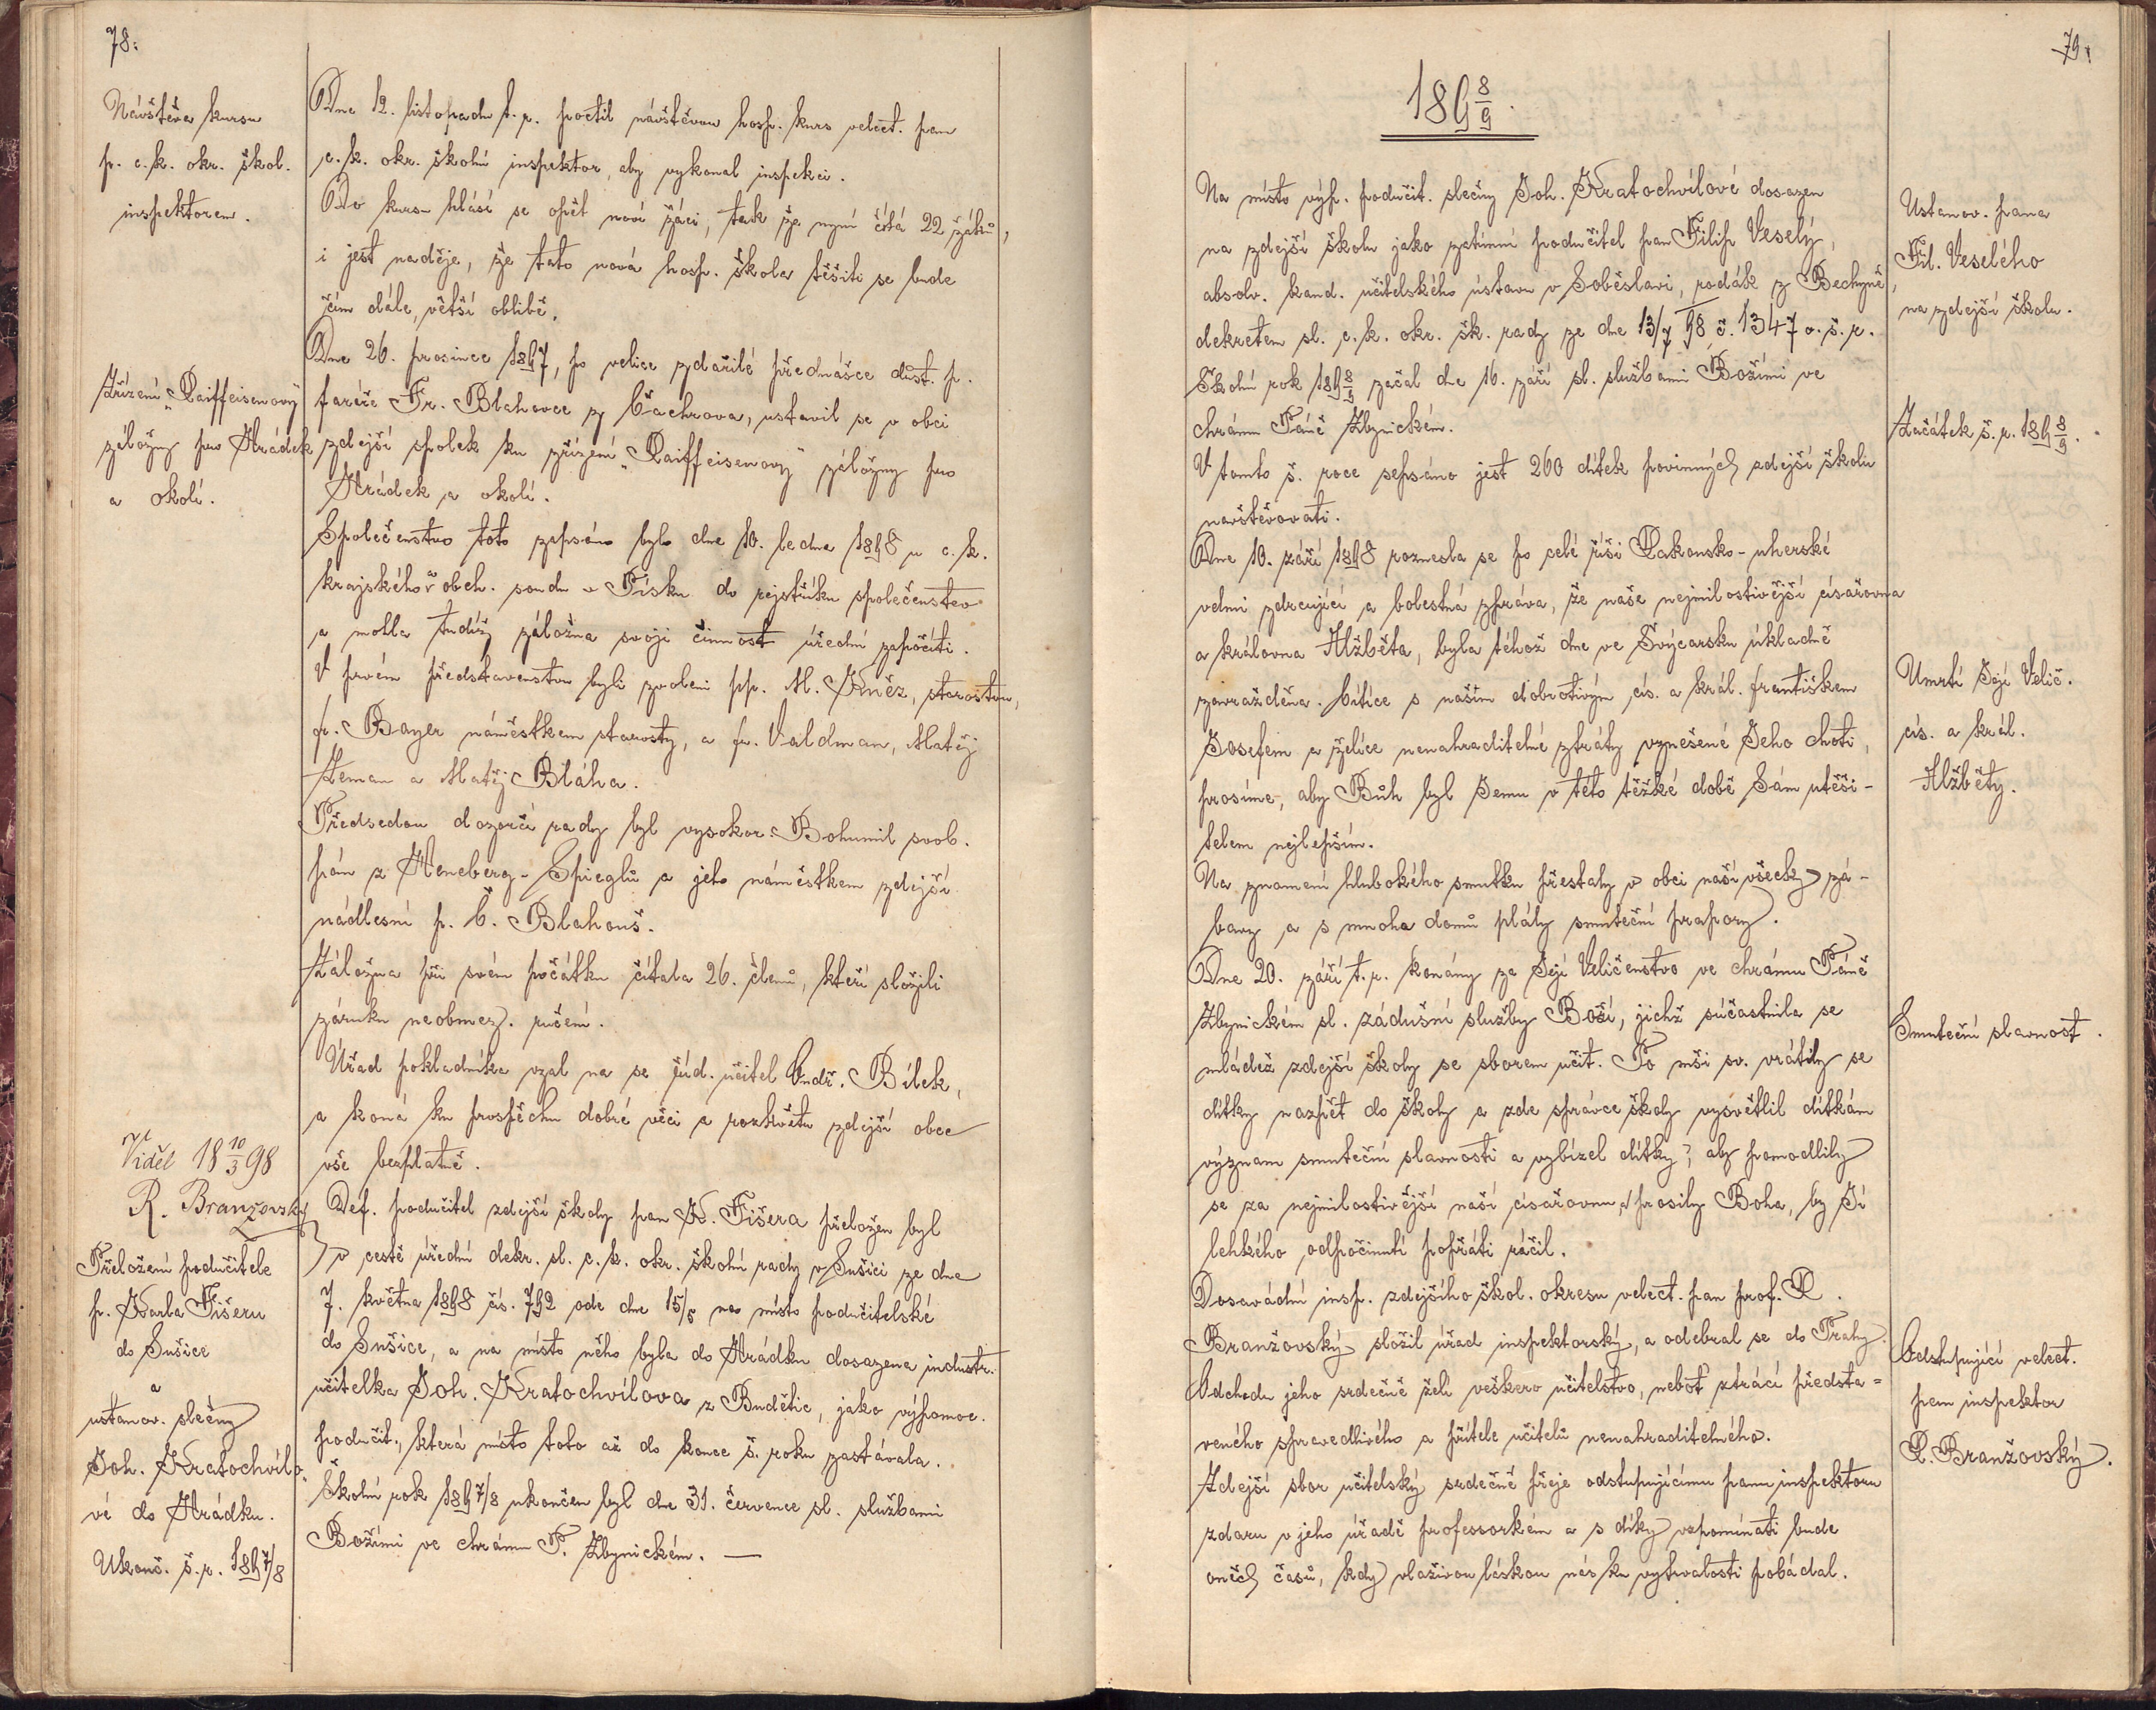 78.
Návštěva kursu
p. c. k. okr. škol.
inspektorem.
Dne 12. listopadu t. r. poctil návštěvou hosp. kurs velect. pan
c. k. okr. školní inspektor, aby vykonal inspekci.
Do kursu hlásí se opět noví žáci, tak že nyní čítá 22 žáků,
i jest naděje, že tato nová hosp. škola těšiti se bude
čím dále, větší oblibě.
Zřízení „Raiffeisenovy"
záložny pro Hrádek
a okolí.
Dne 26. prosince 1897, po velice zdařilé přednášce důst. p.
faráře Fr. Blahovce z Čachrova, ustavil se v obci
zdejší spolek ku zřízení „Raiffeisenovy" záložny pro
Hrádek a okolí.
Společenstvo toto zapsáno bylo dne 10. ledna 1898 u c. k.
krajského a obch. soudu v Písku do rejstříku společenstev
a mohla tudíž záložna svoji činnost úřední započíti.
V prvém představenstvu byli zvoleni pp. M. Kněz, starostou,
fr. Bayer náměstkem starosty, a fr. Valdman, Matěj
Zeman a Matěj Bláha.
Předsedou dozorčí rady byl vysokor. Bohumil svob.
pán z Heneberg-Spieglů a jeho náměstkem zdejší
nádlesní p. Č. Blahouš.
Záložna při svém počátku čítala 26. členů, kteří složili
záruku neobmez. ručení.
Úřad pokladníka vzal na se júd. učitel Ondř. Bílek,
a koná ku prospěchu dobré věci a rozkvětu zdejší obce
vše bezplatně.
Viděl 18 10/3 98
R. Branžovský
Přeložení podučitele
p. Karla Fišeru
do Sušice
a
ustanov. slečny
Joh. Kratochvílo-
vé do Hrádku.
Def. podučitel zdejší školy pan K. Fišera přeložen byl
v cestě úřední dekr. sl. c. k. okr. školní rady v Sušici ze dne
7. května 1898 čís. 792 ode dne 15/5 na místo podučitelské
do Sušice, a na místo něho byla do Hrádku dosazena industr.
učitelka Joh. Kratochvílova z Budětic, jako výpomoc.
podučit., která místo toto až do konce š. roku zastávala.
Ukonč. š. r. 1897/8
Školní rok 1897/8 ukončen byl dne 31. července sl. službami
Božími ve chrámu P. Zbynickém. —
79.
1898/9.
Ustanov. pana
Fil. Veselého
na zdejší školu.
Na místo výp. podučit. slečny Joh. Kratochvílové dosazen
na zdejší školu jako zatímní podučitel pan Filip Veselý,
absolv. kand. učitelského ústavu v Soběslavi, rodák z Bechyně,
dekretem sl. c. k. okr. šk. rady ze dne 13/7 98 č. 1347 o. š. r.
Začátek š. r. 1898/9.
Školní rok 1898/9 začal dne 16. září sl. službami Božími ve
chrámu Páně Zbynickém.
V tomto š. roce sepsáno jest 260 dítek povinných zdejší školu
navštěvovati.
Umrtí Její Velič.
cís. a král.
Alžběty.
Dne 10. září 1898 roznesla se po celé říši Rakousko-uherské
velmi zdrcující a bolestná zpráva, že naše nejmilostivější císařovna
a královna Alžběta, byla téhož dne ve Švýcarsku úkladně
zavražděna. Cítíce s naším dobrotivým cís. a král. Františkem
Josefem a želíce nenahraditelné ztráty vznešené Jeho choti,
prosíme, aby Bůh byl Jemu v této těžké době Sám utěši-
telem nejlepším.
Na znamení hlubokého smutku přestaly v obci naší všecky zá-
bavy a s mnoha domů vlály smuteční prapory.
Smuteční slavnost.
Dne 20. září t. r. konány za Její Veličenstvo ve chrámu Páně
Zbynickém sl. zádušní služby Boží, jichž súčastnila se
mládež zdejší školy se sborem učit. Po mši sv. vrátily se
dítky nazpět do školy a zde správce školy vysvětlil dítkám
význam smuteční slavnosti a vybízel dítky, aby pomodlily
se za nejmilostivější naší císařovnu a prosily Boha, by Jí
lehkého odpočinutí popřáti ráčil.
Odstupující velect.
pan inspektor
R. Branžovský.
Dosavádní insp. zdejšího škol. okresu velect. pan prof. R.
Branžovský složil úřad inspektorský, a odebral se do Prahy.
Odchodu jeho srdečně želí veškero učitelstvo, neboť ztrácí předsta-
veného spravedlivého a přítele učitelů nenahraditelného.
Zdejší sbor učitelský srdečně přeje odstupujícímu panu inspektoru
zdaru v jeho úřadě professorkém a s díky vzpomínati bude
oněch časů, kdy vlaživou láskou nás ku vytrvalosti pobádal.